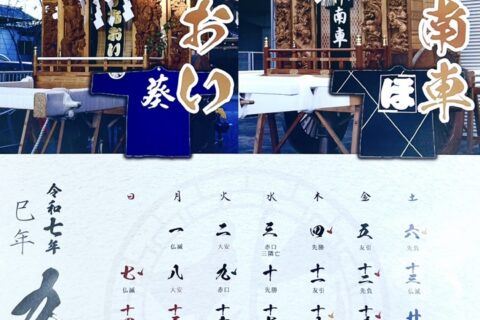 おい
南車
南車
葵
ほ
令和七年
巳年
日 月 火 水 木 金 土
一 二 三 四 五 六
仏滅 大安 赤口 先勝 友引 先負
三隣亡
七 八 九 十 十一 十二 十三
仏滅 大安 赤口 先勝 友引 先負 仏滅